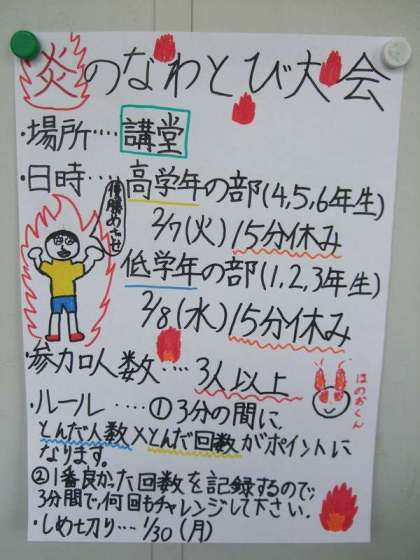 炎のなわとび大会
・場所‥‥講堂
・日時‥‥高学年の部(4,5,6年生)
2/7(火)15分休み
優勝めざせ
低学年の部(1,2,3年生)
2/8(水)15分休み
・参加人数‥‥3人以上
ほのおくん
・ルール‥‥‥①3分の間に、
とんだ人数×とんだ回数がポイントに
なります。
②1番良かった回数を記録するので、
3分間で、何回もチャレンジして下さい。
・しめ切り‥‥1/30(月)